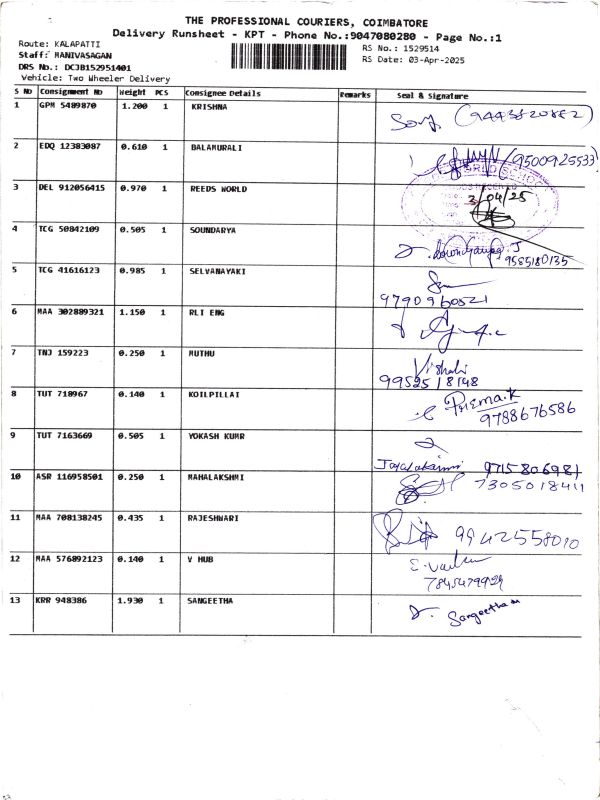 THE PROFESSIONAL COURIERS, COIMBATORE
Delivery Runsheet - KPT - Phone No.:9047080280 - Page No.:1
Route: KALAPATTI
Staff: MANIVASAGAN
DRS No.: DCJB152951401
Vehicle: Two Wheeler Delivery
RS No.: 1529514
RS Date: 03-Apr-2025
S NO Consignment NO Weight PCS Consignee Details Remarks Seal & Signature
1 GPM 5489870 1.200 1 KRISHNA
2 EDQ 12383087 0.610 1 BALAMURALI (9500925533)
3 DEL 912056415 0.970 1 REEDS WORLD 3/04/25
4 TCG 50842109 0.505 1 SOUNDARYA
9585180135
5 TCG 41616123 0.985 1 SELVANAYAKI
9790960521
6 MAA 302889321 1.150 1 RLI ENG
7 TNJ 159223 0.250 1 MUTHU
9952518148
8 TUT 718967 0.140 1 KOILPILLAI PREMA.K
9788676586
9 TUT 7163669 0.505 1 YOKASH KUMR
9715806981
10 ASR 116958501 0.250 1 MAHALAKSHMI 7305018411
11 MAA 708138245 0.435 1 RAJESHWARI 9942558010
12 MAA 576892123 0.140 1 V HUB
13 KRR 948386 1.930 1 SANGEETHA